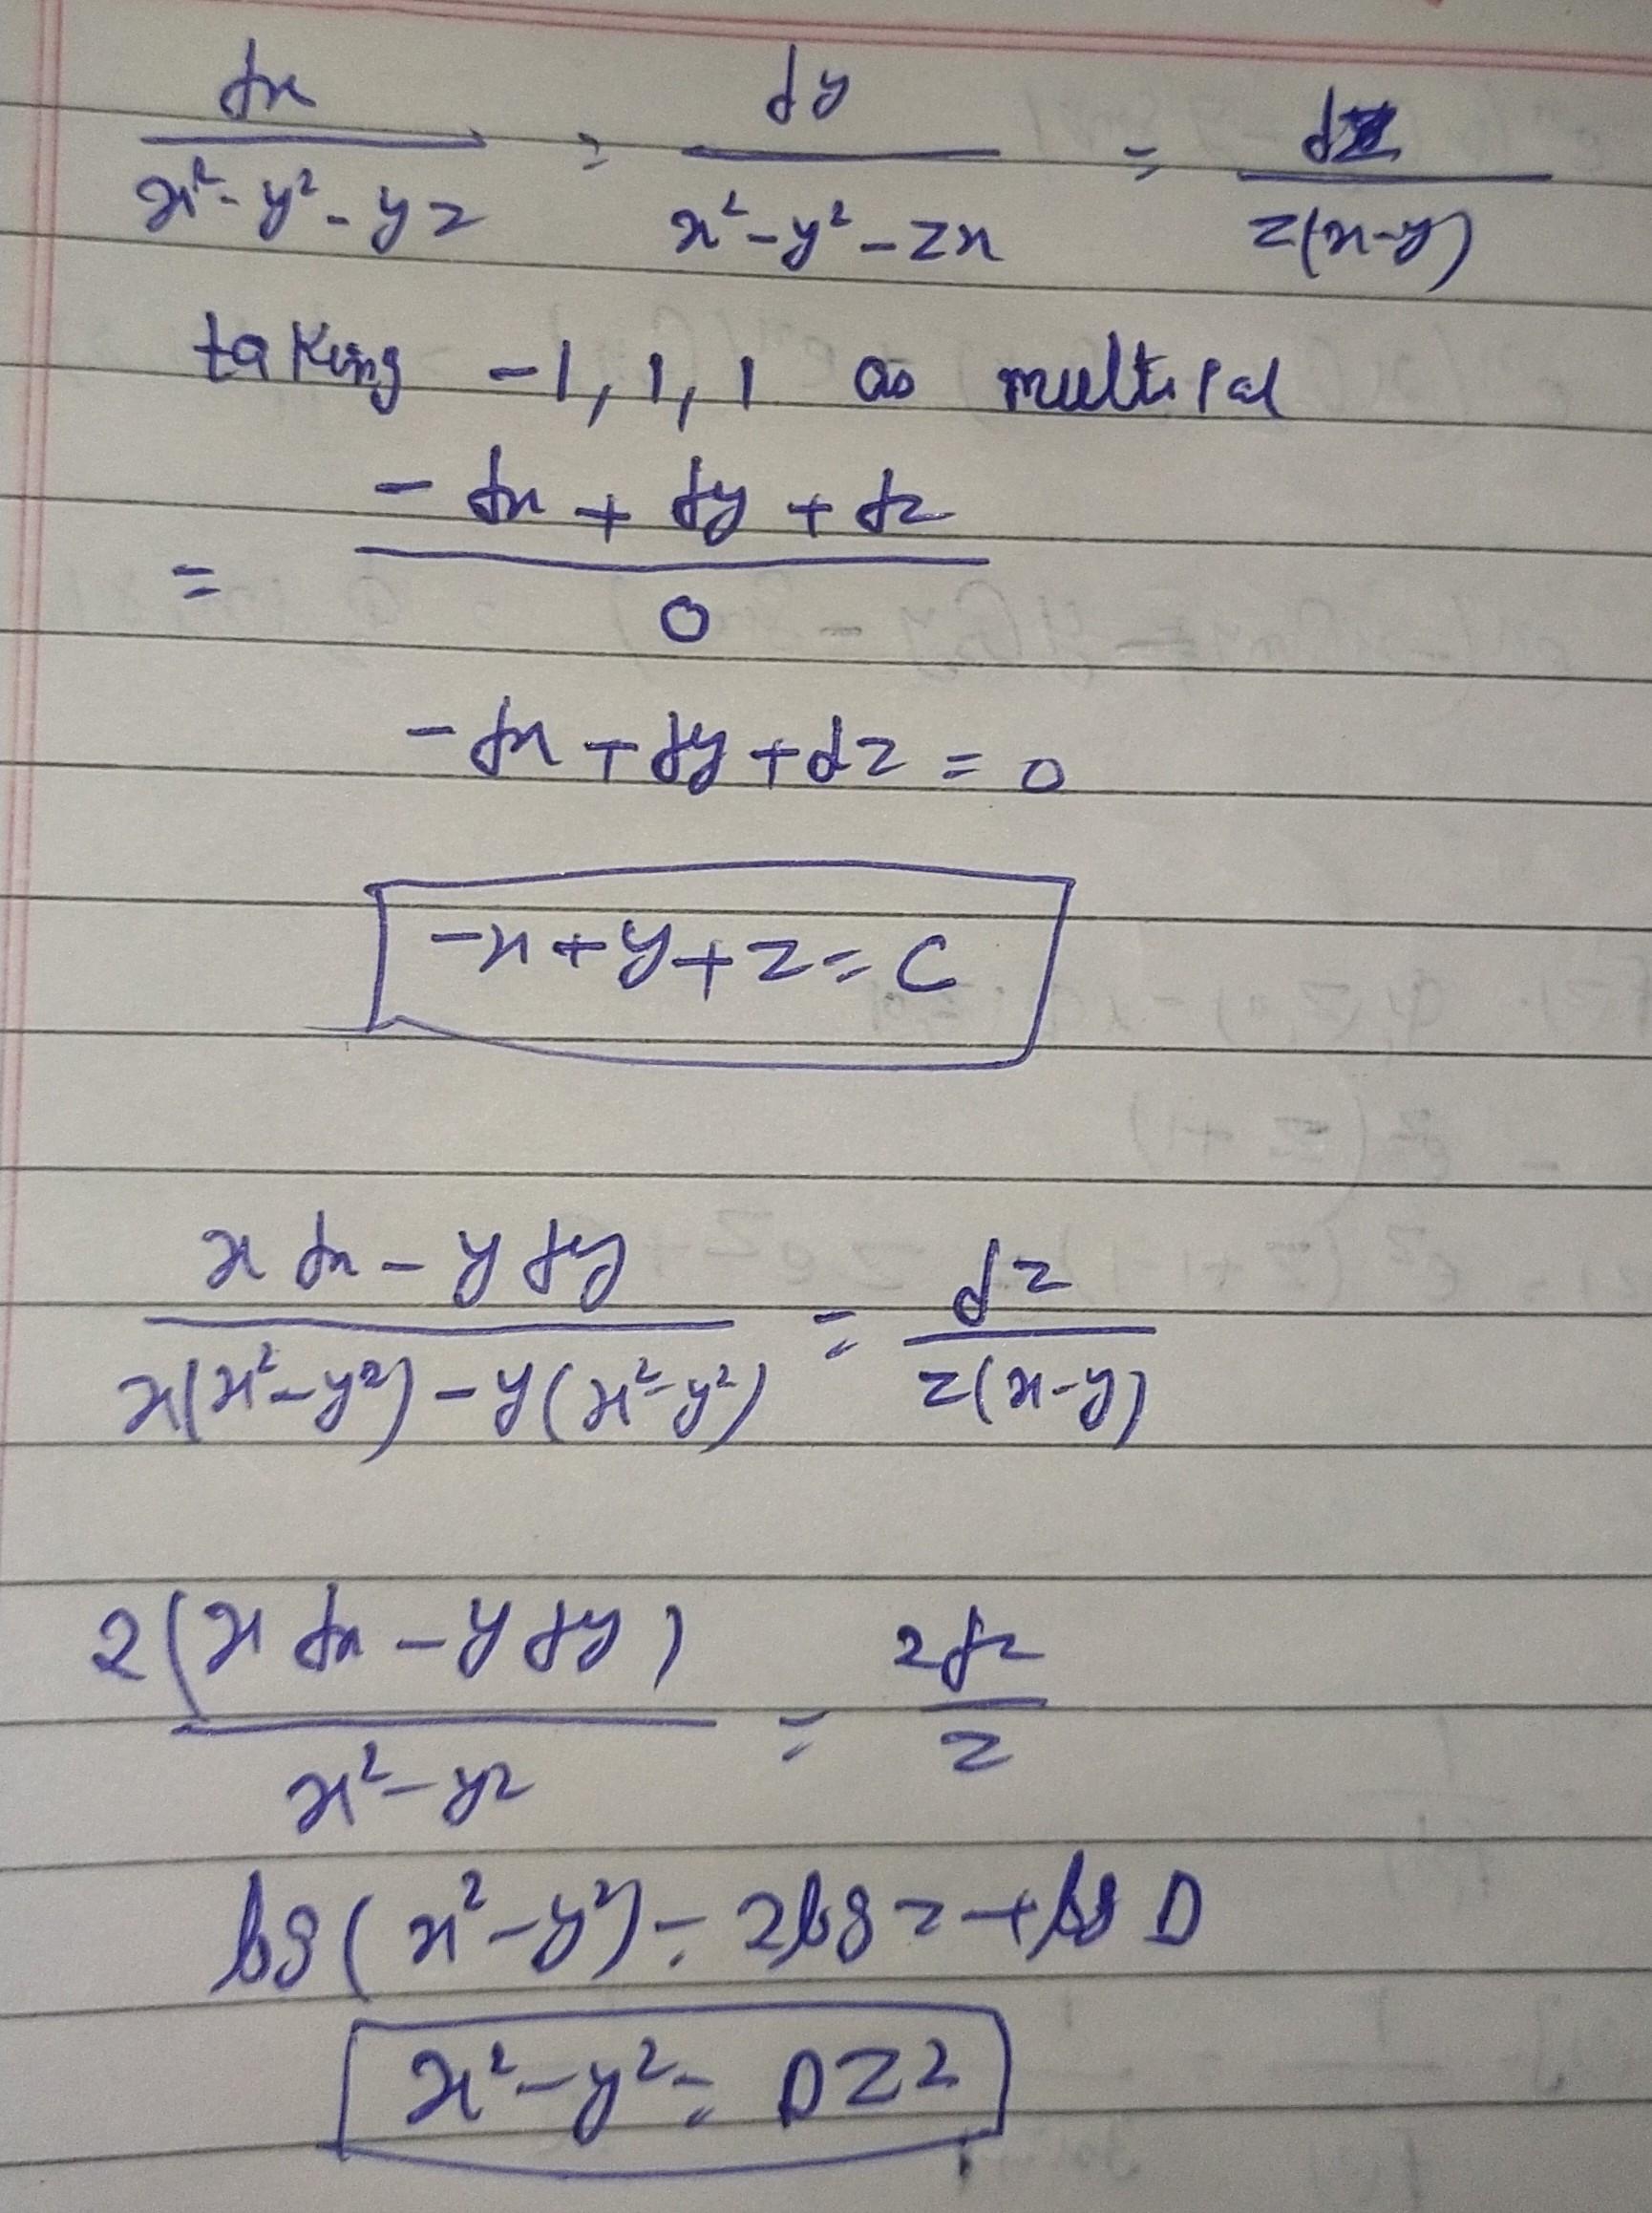 dx/(x²-y²-yz) = dy/(x²-y²-zx) = dz/(z(x-y))
taking -1, 1, 1 as multipal
= (-dx + dy + dz)/0
-dx + dy + dz = 0
-x + y + z = C
(x dx - y dy)/(x(x²-y²) - y(x²-y²)) = dz/(z(x-y))
2(x dx - y dy)/(x²-y²) = 2dz/z
log(x²-y²) = 2log z + log D
x²-y² = Dz²